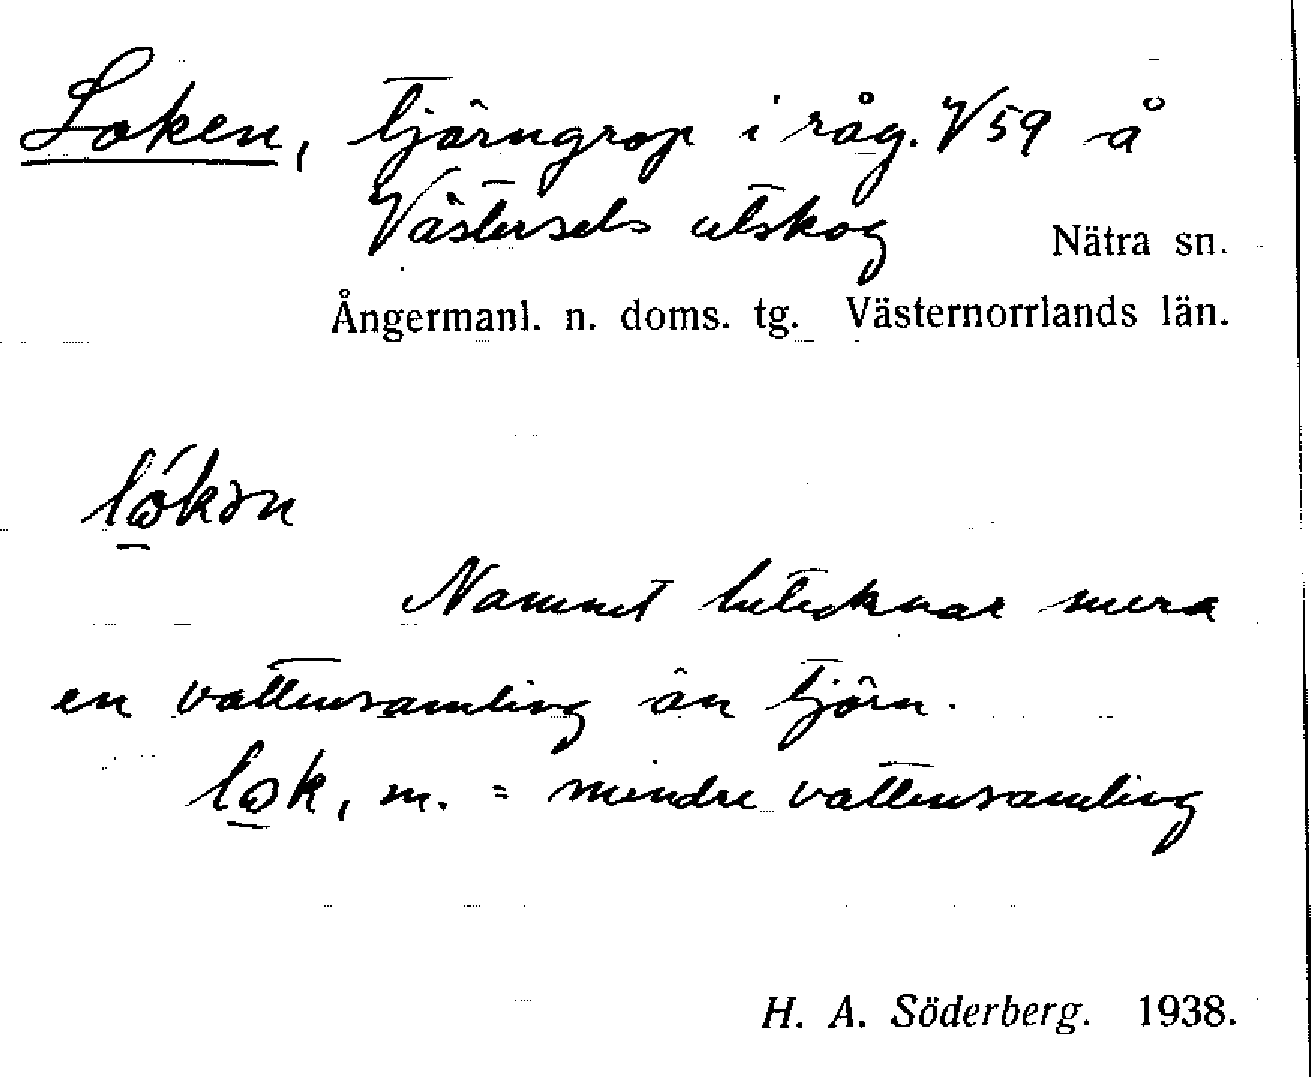 Loken, tjärngrop i råg. V59 å
Västersels utskog
Nätra sn.
Ångermanl. n. doms. tg. Västernorrlands län.
lώ̲kən
Namnet betecknar mera
en vattensamling än tjärn.
lω̲k, m. = mindre vattensamling
H. A. Söderberg. 1938.